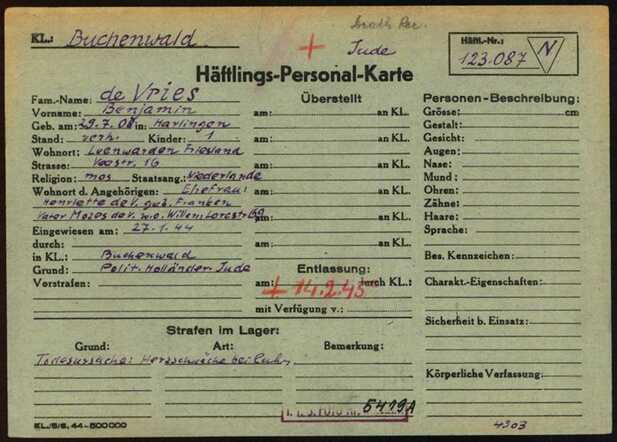 Death Rec.
KL.: Buchenwald
+ Jude
Häftl.-Nr.:
123.087 N
Häftlings-Personal-Karte
Fam.-Name: de Vries
Vorname: Benjamin
Geb. am: 29.7.08 in: Harlingen
Stand: verh. Kinder: 1
Wohnort: Leenwarden Friesland
Strasse: 16
Religion: mos Staatsang.: Niederlande
Wohnort d. Angehörigen: Ehefrau:
Henriette de V. geb. Franken
Vater Mozes de V. w.o. Willem
Eingewiesen am: 27.1.44
durch:
in KL.: Buchenwald
Grund: Polit. Holländer Jude
Vorstrafen:
Überstellt
am: an KL.
am: an KL.
am: an KL.
am: an KL.
am: an KL.
am: an KL.
Entlassung:
am: durch KL.:
+ 14.2.45
mit Verfügung v.:
Personen-Beschreibung:
Grösse: cm
Gestalt:
Gesicht:
Augen:
Nase:
Mund:
Ohren:
Zähne:
Haare:
Sprache:
Bes. Kennzeichen:
Charakt.-Eigenschaften:
Sicherheit b. Einsatz:
Körperliche Verfassung:
Strafen im Lager:
Grund: Art: Bemerkung:
Todesursache: Herzschwäche bei
I.T.S. FOTO Nr. 5419A
KL/5/6. 44-500000
4303